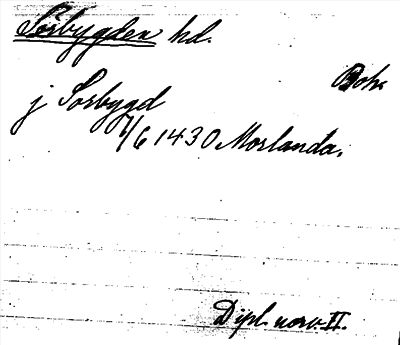 Sörbygden hd.
Boh.
j Sorbygd
7/6 1430 Morlanda.
Dipl. norv. II.